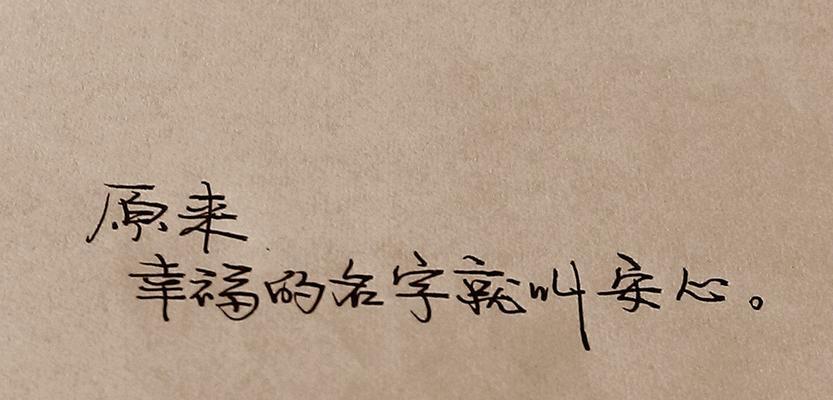 原来
幸福的名字就叫安心。